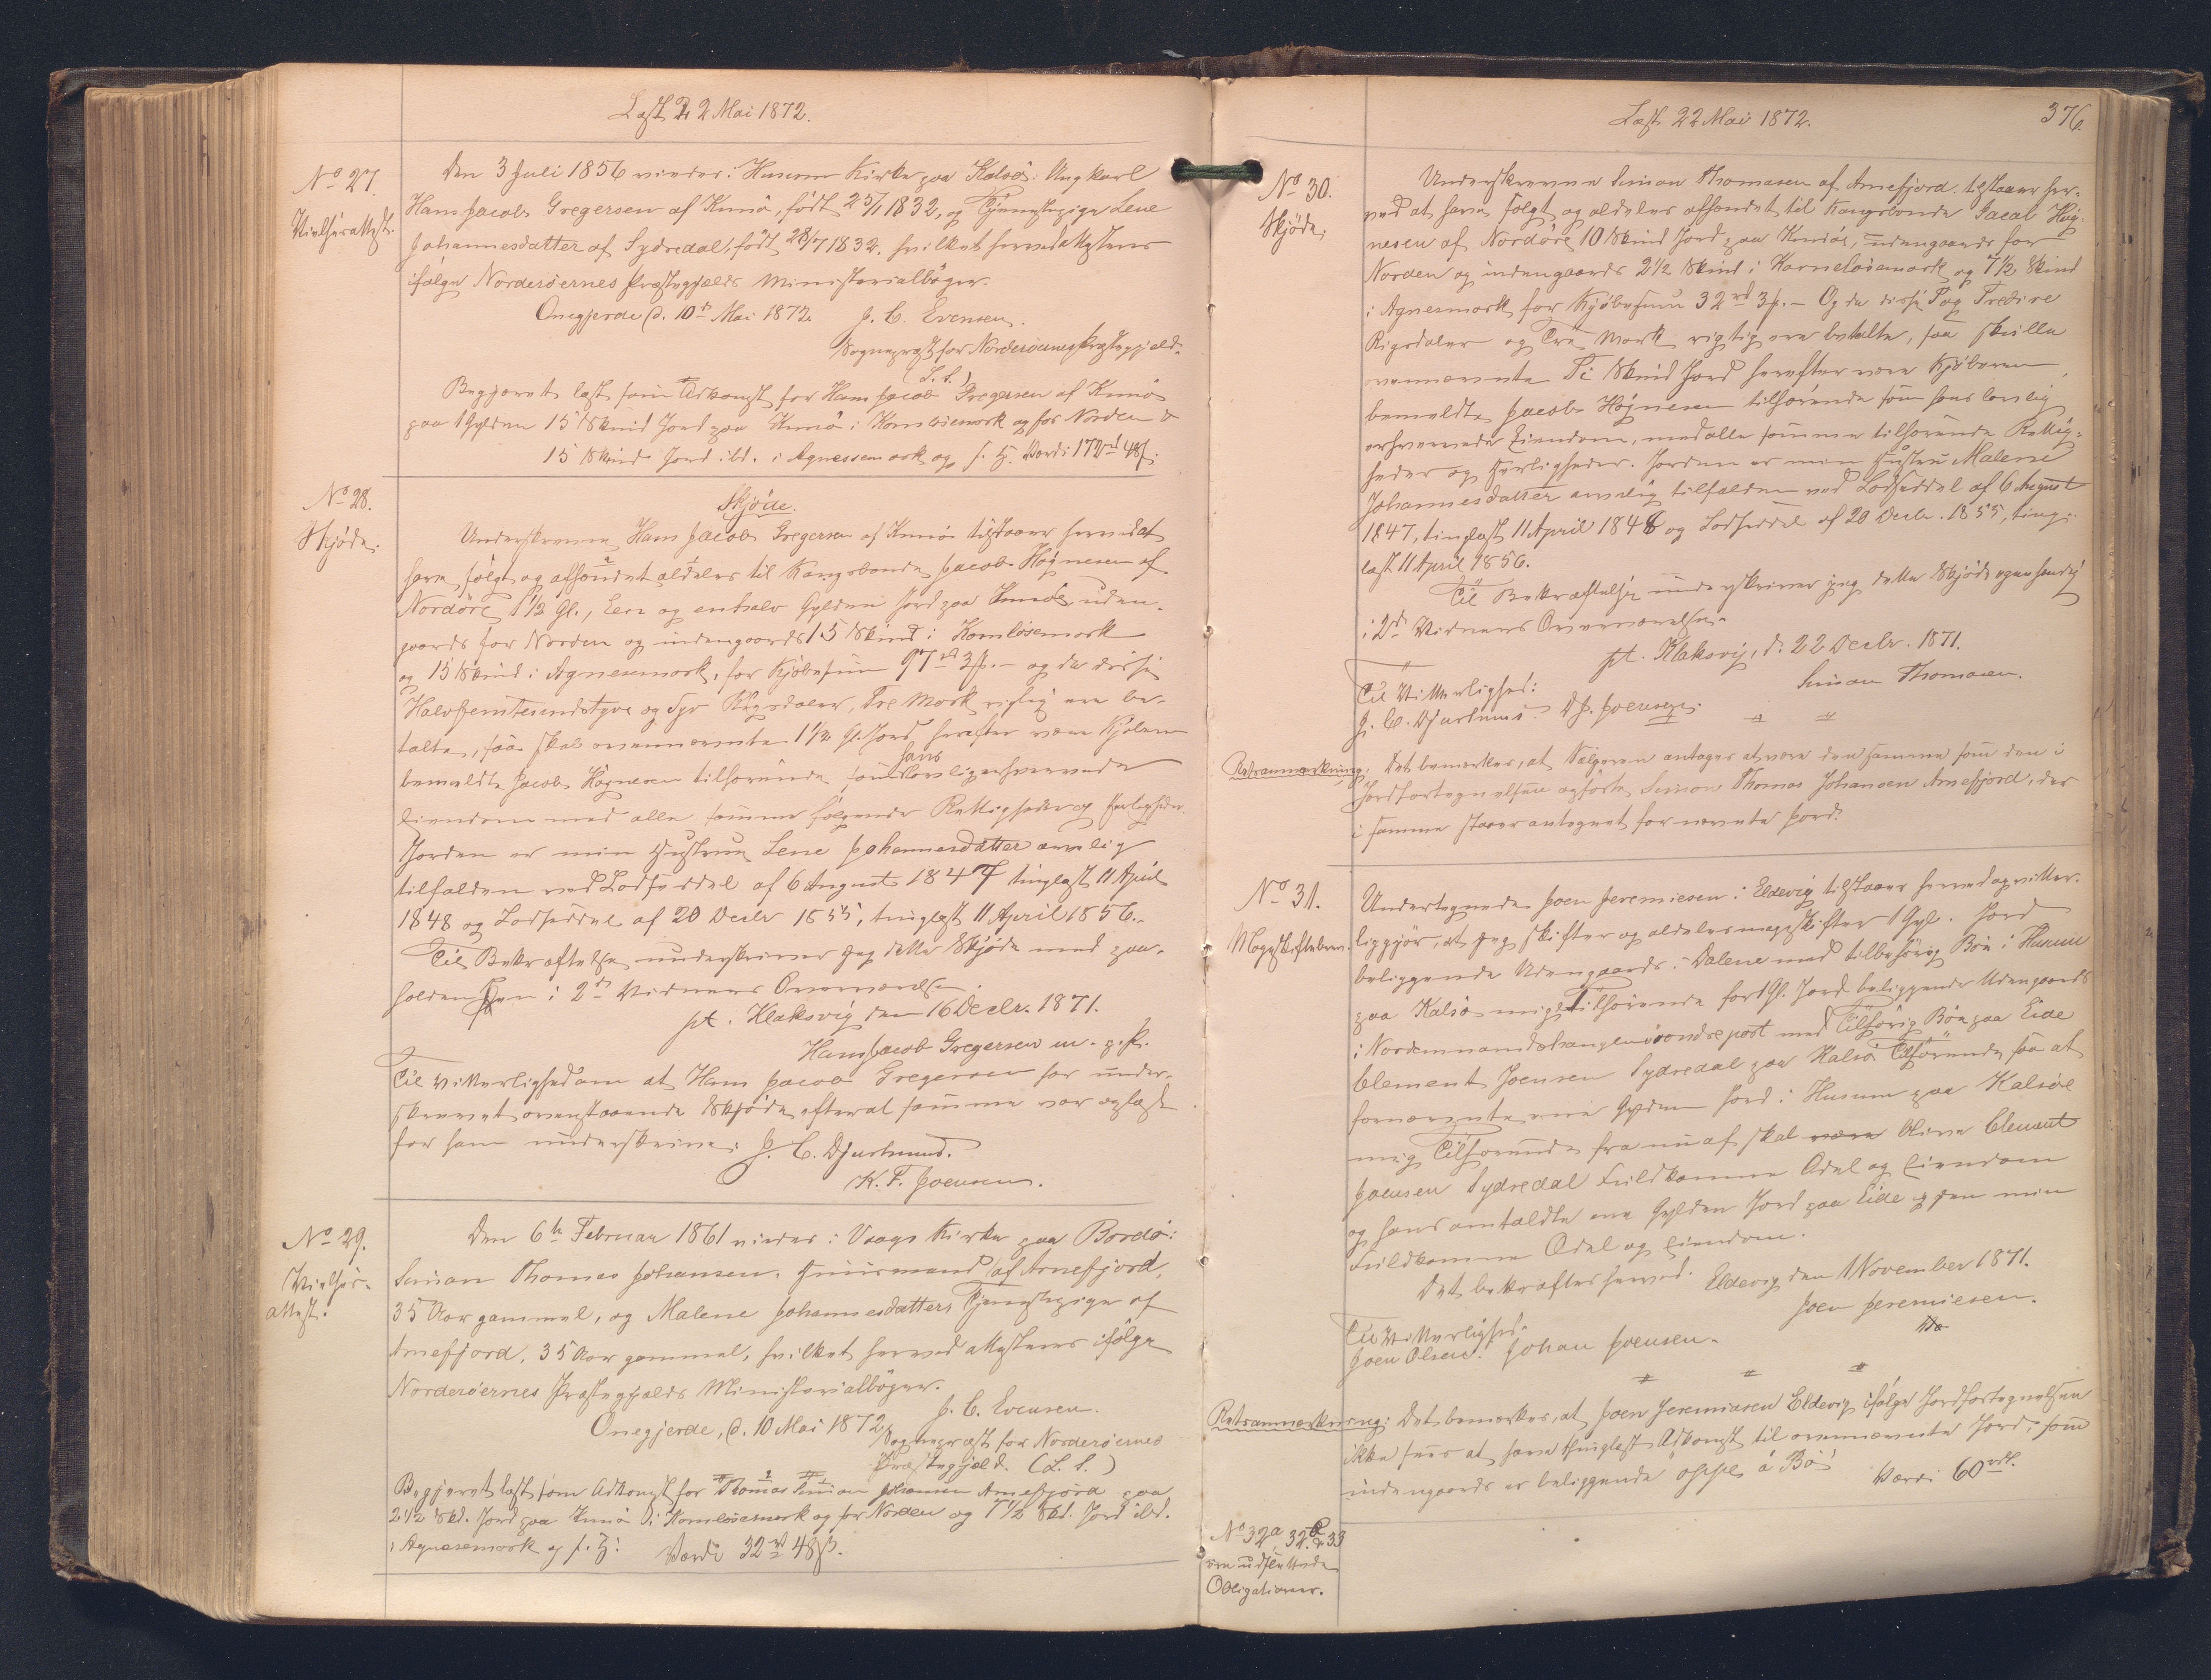 Læst 22 Mai 1872.
No 27.
Vielsesattest.
Den 3 Juli 1856 viedes i Husum Kirke paa Kalsö: Ungkarl
Hans Jacob Gregersen af Kunö, födt 25/1 1832, og Tjenestepige Lene
Johannesdatter af Sydredal, födt 28/7 1832. hvilket herved attesteres
ifölge Norderöernes Præstegjælds Ministerialböger.
Onegjerde, d. 10de Mai 1872. J. C. Evensen.
Sognepræst for Norderöernes Præstegjæld.
(L. S.)
Begjæret læst som Adkomst for Hans Jacob Gregersen af Kunö
paa 1 Gylden 15 Skind Jord paa Kunö i Kornlösemark og for Norden &
15 Skind Jord ibd. i Agnessemark og s. H. Værdi 172 rd 48 s.
No 28.
Skjöde.
Skjöde.
Underskrevne Hans Jacob Gregersen af Kunö tilstaaer herved at
have solgt og afhændet aldeles til Kongsbonde Jacob Högnesen af
Nordöre 1½ Gl., Een og enhalv Gylden Jord paa Kunöe, uden-
gaards for Norden og indengaards 15 Skind i Kornlösemark
og 15 Skind i Agnesemark, for Kjöbesum 97 rd 3 s. – og da disse
Halvfemtesindstyve og Syv Rigsdaler, Tre Mark rigtig ere be-
talte, saa skal ovennævnte 1½ Gl. Jord herefter være Kjöberen
hans
bemeldte Jacob Högnesen tilhörende som lovligerhvervede
Eiendom med alle samme fölgende Rettigheder og Herligheder.
Jorden er min Hustrue Lene Johannesdatter arvelig
tilfalden ved Lodseddel af 6 August 1847 tinglæst 11 April
1848 og Lodseddel af 20 Decbr 1855, tinglæst 11 April 1856.
Til Bekræftelse underskriver jeg dette Skjöde med paa-
holden Pen i 2de Vidners Overværelse.
pt. Klaksvig den 16 Decbr. 1871.
Hans Jacob Gregersen m. p. P.
Til Vitterlighed om at Hans Jacob Gregersen har under-
skrevet ovenstaaende Skjöde, efterat samme var oplæst
for ham underskrive: J. C. Djurhuus.
K. F. Joensen.
No 29.
Vielses-
attest.
Den 6te Februar 1861 viedes i Vaags Kirke paa Bordö:
Simon Thomas Johansen, Huusmand af Arnefjord,
35 Aar gammel, og Malene Johannesdatter, Tjenestepige af
Arnefjord, 35 Aar gammel, hvilket herved attesteres ifölge
Norderöernes Præstegjælds Ministerialböger.
Onegjerde, d. 10 Mai 1872, J. C. Evensen.
Sognepræst for Norderöernes
Præstegjæld. (L. S.)
Begjæret læst som Adkomst for Thomas Simon Johansen Arnefjord paa
2½ Skd. Jord paa Kunö i Kornlösemark og for Norden og 7½ Skd. Jord ibd.
i Agnesemark og s. H: Værdi 32 rd 48 s.
Læst 22 Mai 1872.
376.
No 30.
Skjöde.
Underskrevne Simon Thomasen af Arnefjord tilstaaer her-
ved at have solgt og aldeles afhændet til Kongsbonde Jacob Hög-
nesen af Nordöre 10 Skind Jord paa Kunöe, udengaards for
Norden og indengaards 2½ Skind i Kornelösemark og 7½ Skind
i Agnesmark for Kjöbesum 32 rd 3 s. – Og da disse To og Tredive
Rigsdaler og Tre Mark rigtig ere betalte, saa skulle
ovennævnte Ti Skind Jord herefter være Kjöberen
bemeldte Jacob Högnesen tilhörende som hans lovlig
erhvervede Eiendom, med alle samme tilhörende Rettig-
heder og Herligheder. Jorden er min Hustru Malene
Johannesdatter arvelig tilfalden ved Lodseddel af 6 August
1847, tinglæst 11 April 1848 og Lodseddel af 20 Decbr. 1855, ting-
læst 11 April 1856.
Til Bekræftelse underskriver jeg dette Skjöde egenhændig
i 2de Vidners Overværelse.
pt. Klaksvig, d. 22 Decbr. 1871.
Simon Thomasen.
Til Vitterlighed:
J. C. Djurhuus. D J. Joensen.
Retsanmærkning: Det bemærkes, at Sælgeren antages at være den samme som den i
Jordfortegnelsen opförte Simon Thomas Johansen Arnefjord, der
i samme staaer antegnet for nævnte Jord.
No 31.
Mageskiftebrev.
Undertegnede Joen Jeremiesen i Eldevig tilstaaer herved og vitter-
liggjör, at jeg skifter og aldeles mageskifter 1 Gyl. Jord
beliggende Udengaards i Dalene med tilbehörig Böe i Husum
paa Kalsö mig Tilhörende for 1 Gl. Jord beliggende Udengaards
i post med Tilhörig Böe paa Eide
Clement Joensen Sydredal paa Kalsö Tilhörende saa at
fornævnte ene Gylden Jord i Husum paa Kalsöe
mig Tilhörende fra nu af skal være blive Clement
Joensen Sydredal Fuldkomne Odel og Eiendom
og hans omtaldte ene Gylden Jord paa Eide igjen min
Fuldkomne Odel og Eiendom.
Det bekræftes herved. Eldevig den 1 November 1871.
Joen Jeremiesen.
Til Vitterlighed.
Joen Olsen. Johan Joensen.
Retsanmærkning: Det bemærkes, at Joen Jeremiasen Eldevig ifölge Jordfortegnelsen
ikke sees at have thinglæst Adkomst til ovennævnte Jord, som
indengaards er beliggende á Bö
Værdi 60 rdl.
No 32a, 32b & 33
ere udslettede
Obligationer.